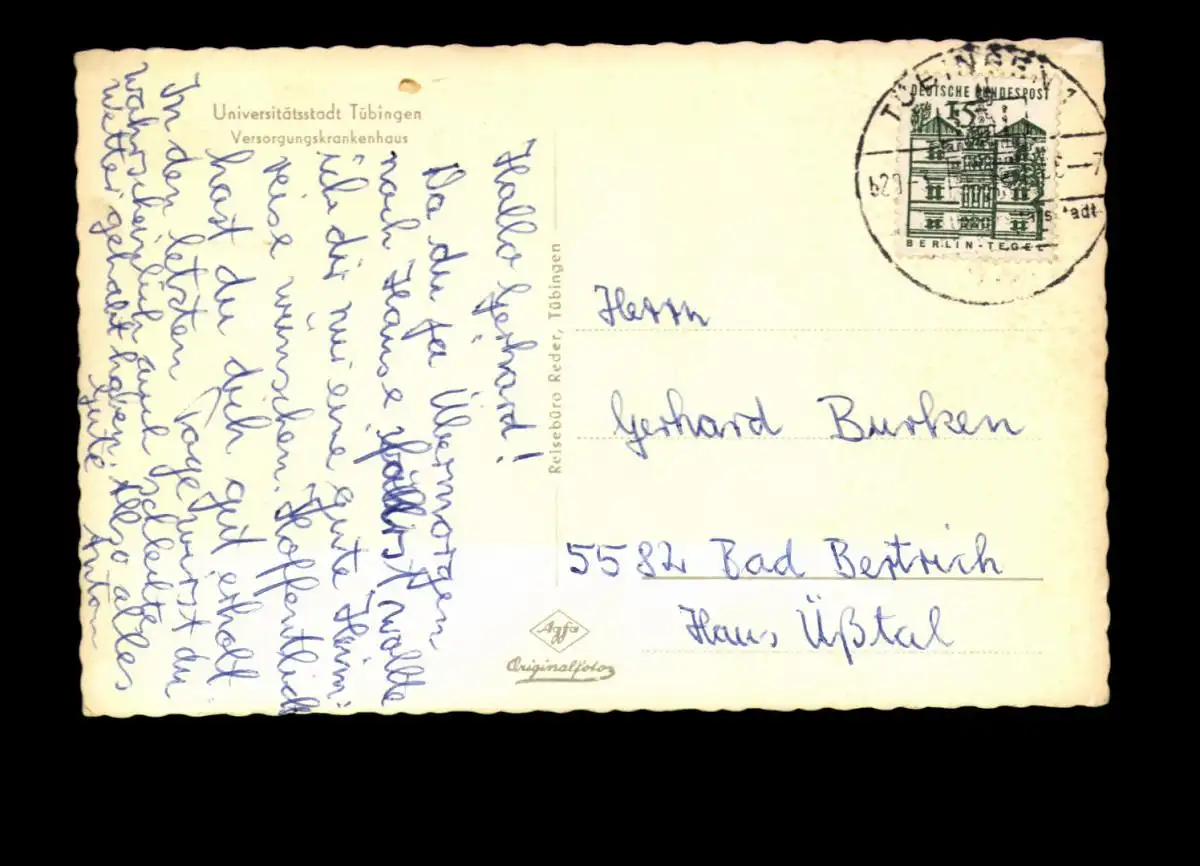 Universitätsstadt Tübingen
Versorgungskrankenhaus
Hallo Gerhard!
Da du ja Übermorgen
nach Hause fährst, wollte
ich dir nur eine gute Heim-
reise wünschen. Hoffentlich
hast du dich gut erholt
In den letzten Tage wirst du
wahrscheinlich auch schlechtes
Wetter gehabt haben. Also alles
Gute Anton
Reisebüro Reder, Tübingen
Agfa
Originalfoto
TÜBINGEN 1
DEUTSCHE BUNDESPOST
15
BERLIN-TEGEL
Herrn
Gerhard Burken
5582 Bad Bertrich
Haus Üßtal